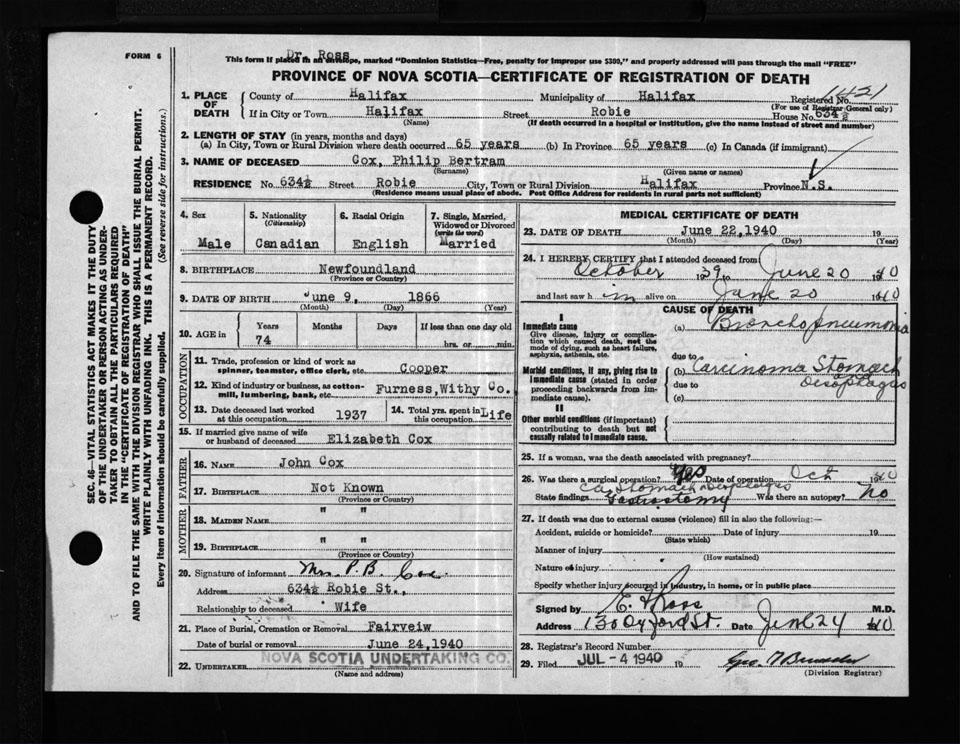 FORM 6
Dr. Ross
This form if placed in an envelope, marked "Dominion Statistics—Free, penalty for improper use $300," and properly addressed will pass through the mail "FREE"
PROVINCE OF NOVA SCOTIA—CERTIFICATE OF REGISTRATION OF DEATH
SEC. 46—VITAL STATISTICS ACT MAKES IT THE DUTY
OF THE UNDERTAKER OR PERSON ACTING AS UNDER-
TAKER TO OBTAIN ALL THE PARTICULARS REQUIRED
IN THE "CERTIFICATE OF REGISTRATION OF DEATH"
AND TO FILE THE SAME WITH THE DIVISION REGISTRAR WHO SHALL ISSUE THE BURIAL PERMIT.
WRITE PLAINLY WITH UNFADING INK. THIS IS A PERMANENT RECORD.
Every item of information should be carefully supplied. (See reverse side for instructions.)
1. PLACE OF DEATH County of Halifax Municipality of Halifax Registered No. 1421
(For use of Registrar General only)
If in City or Town Halifax Street Robie House No. 634½
(Name) (If death occurred in a hospital or institution, give the name instead of street and number)
2. LENGTH OF STAY (in years, months and days)
(a) In City, Town or Rural Division where death occurred 65 years (b) In Province 65 years (c) In Canada (if immigrant)
3. NAME OF DECEASED Cox, Philip Bertram
(Surname) (Given name or names)
RESIDENCE No. 634½ Street Robie City, Town or Rural Division Halifax Province N.S.
(Residence means usual place of abode. Post Office Address for residents in rural parts not sufficient)
4. Sex Male
5. Nationality (Citizenship) Canadian
6. Racial Origin English
7. Single, Married, Widowed or Divorced (write the word) Married
8. BIRTHPLACE Newfoundland
(Province or Country)
9. DATE OF BIRTH June 9, 1866
(Month) (Day) (Year)
10. AGE in Years Months Days If less than one day old
74 hrs. or min.
OCCUPATION
11. Trade, profession or kind of work as
spinner, teamster, office clerk, etc. Cooper
12. Kind of industry or business, as cotton-
mill, lumbering, bank, etc. Furness, Withy Co.
13. Date deceased last worked at this occupation 1937
14. Total yrs. spent in this occupation Life
15. If married give name of wife
or husband of deceased Elizabeth Cox
FATHER
16. NAME John Cox
17. BIRTHPLACE Not Known
(Province or Country)
MOTHER
18. MAIDEN NAME " "
19. BIRTHPLACE " "
(Province or Country)
20. Signature of informant Mrs. P. B. Cox
Address 634½ Robie St.,
Relationship to deceased Wife
21. Place of Burial, Cremation or Removal Fairveiw
Date of burial or removal June 24, 1940
22. UNDERTAKER NOVA SCOTIA UNDERTAKING CO.
(Name and address)
MEDICAL CERTIFICATE OF DEATH
23. DATE OF DEATH June 22, 1940 19
(Month) (Day) (Year)
24. I HEREBY CERTIFY that I attended deceased from
October 1939 to June 20 1940
and last saw him alive on June 20 1940
CAUSE OF DEATH
I
Immediate cause (a) Bronchopneumonia
Give disease, injury or complica-
tion which caused death, not the
mode of dying, such as heart failure,
asphyxia, asthenia, etc.
due to
Morbid conditions, if any, giving rise to
immediate cause (stated in order
proceeding backwards from im-
mediate cause).
(b) Carcinoma Stomach
due to Oesophagus
(c)
II
Other morbid conditions (if important)
contributing to death but not
causally related to immediate cause.
25. If a woman, was the death associated with pregnancy?
26. Was there surgical operation? Yes Date of operation Oct 1940
Ca Stomach Oesophagus
State findings Gastrostomy Was there an autopsy? No
27. If death was due to external causes (violence) fill in also the following:—
Accident, suicide or homicide? Date of injury 19
(State which)
Manner of injury
(How sustained)
Nature of injury
Specify whether injury occurred in industry, in home, or in public place
Signed by Ross M.D.
Address Oxford St. Date June 24 1940
28. Registrar's Record Number
29. Filed JUL - 4 1940 19
(Division Registrar)